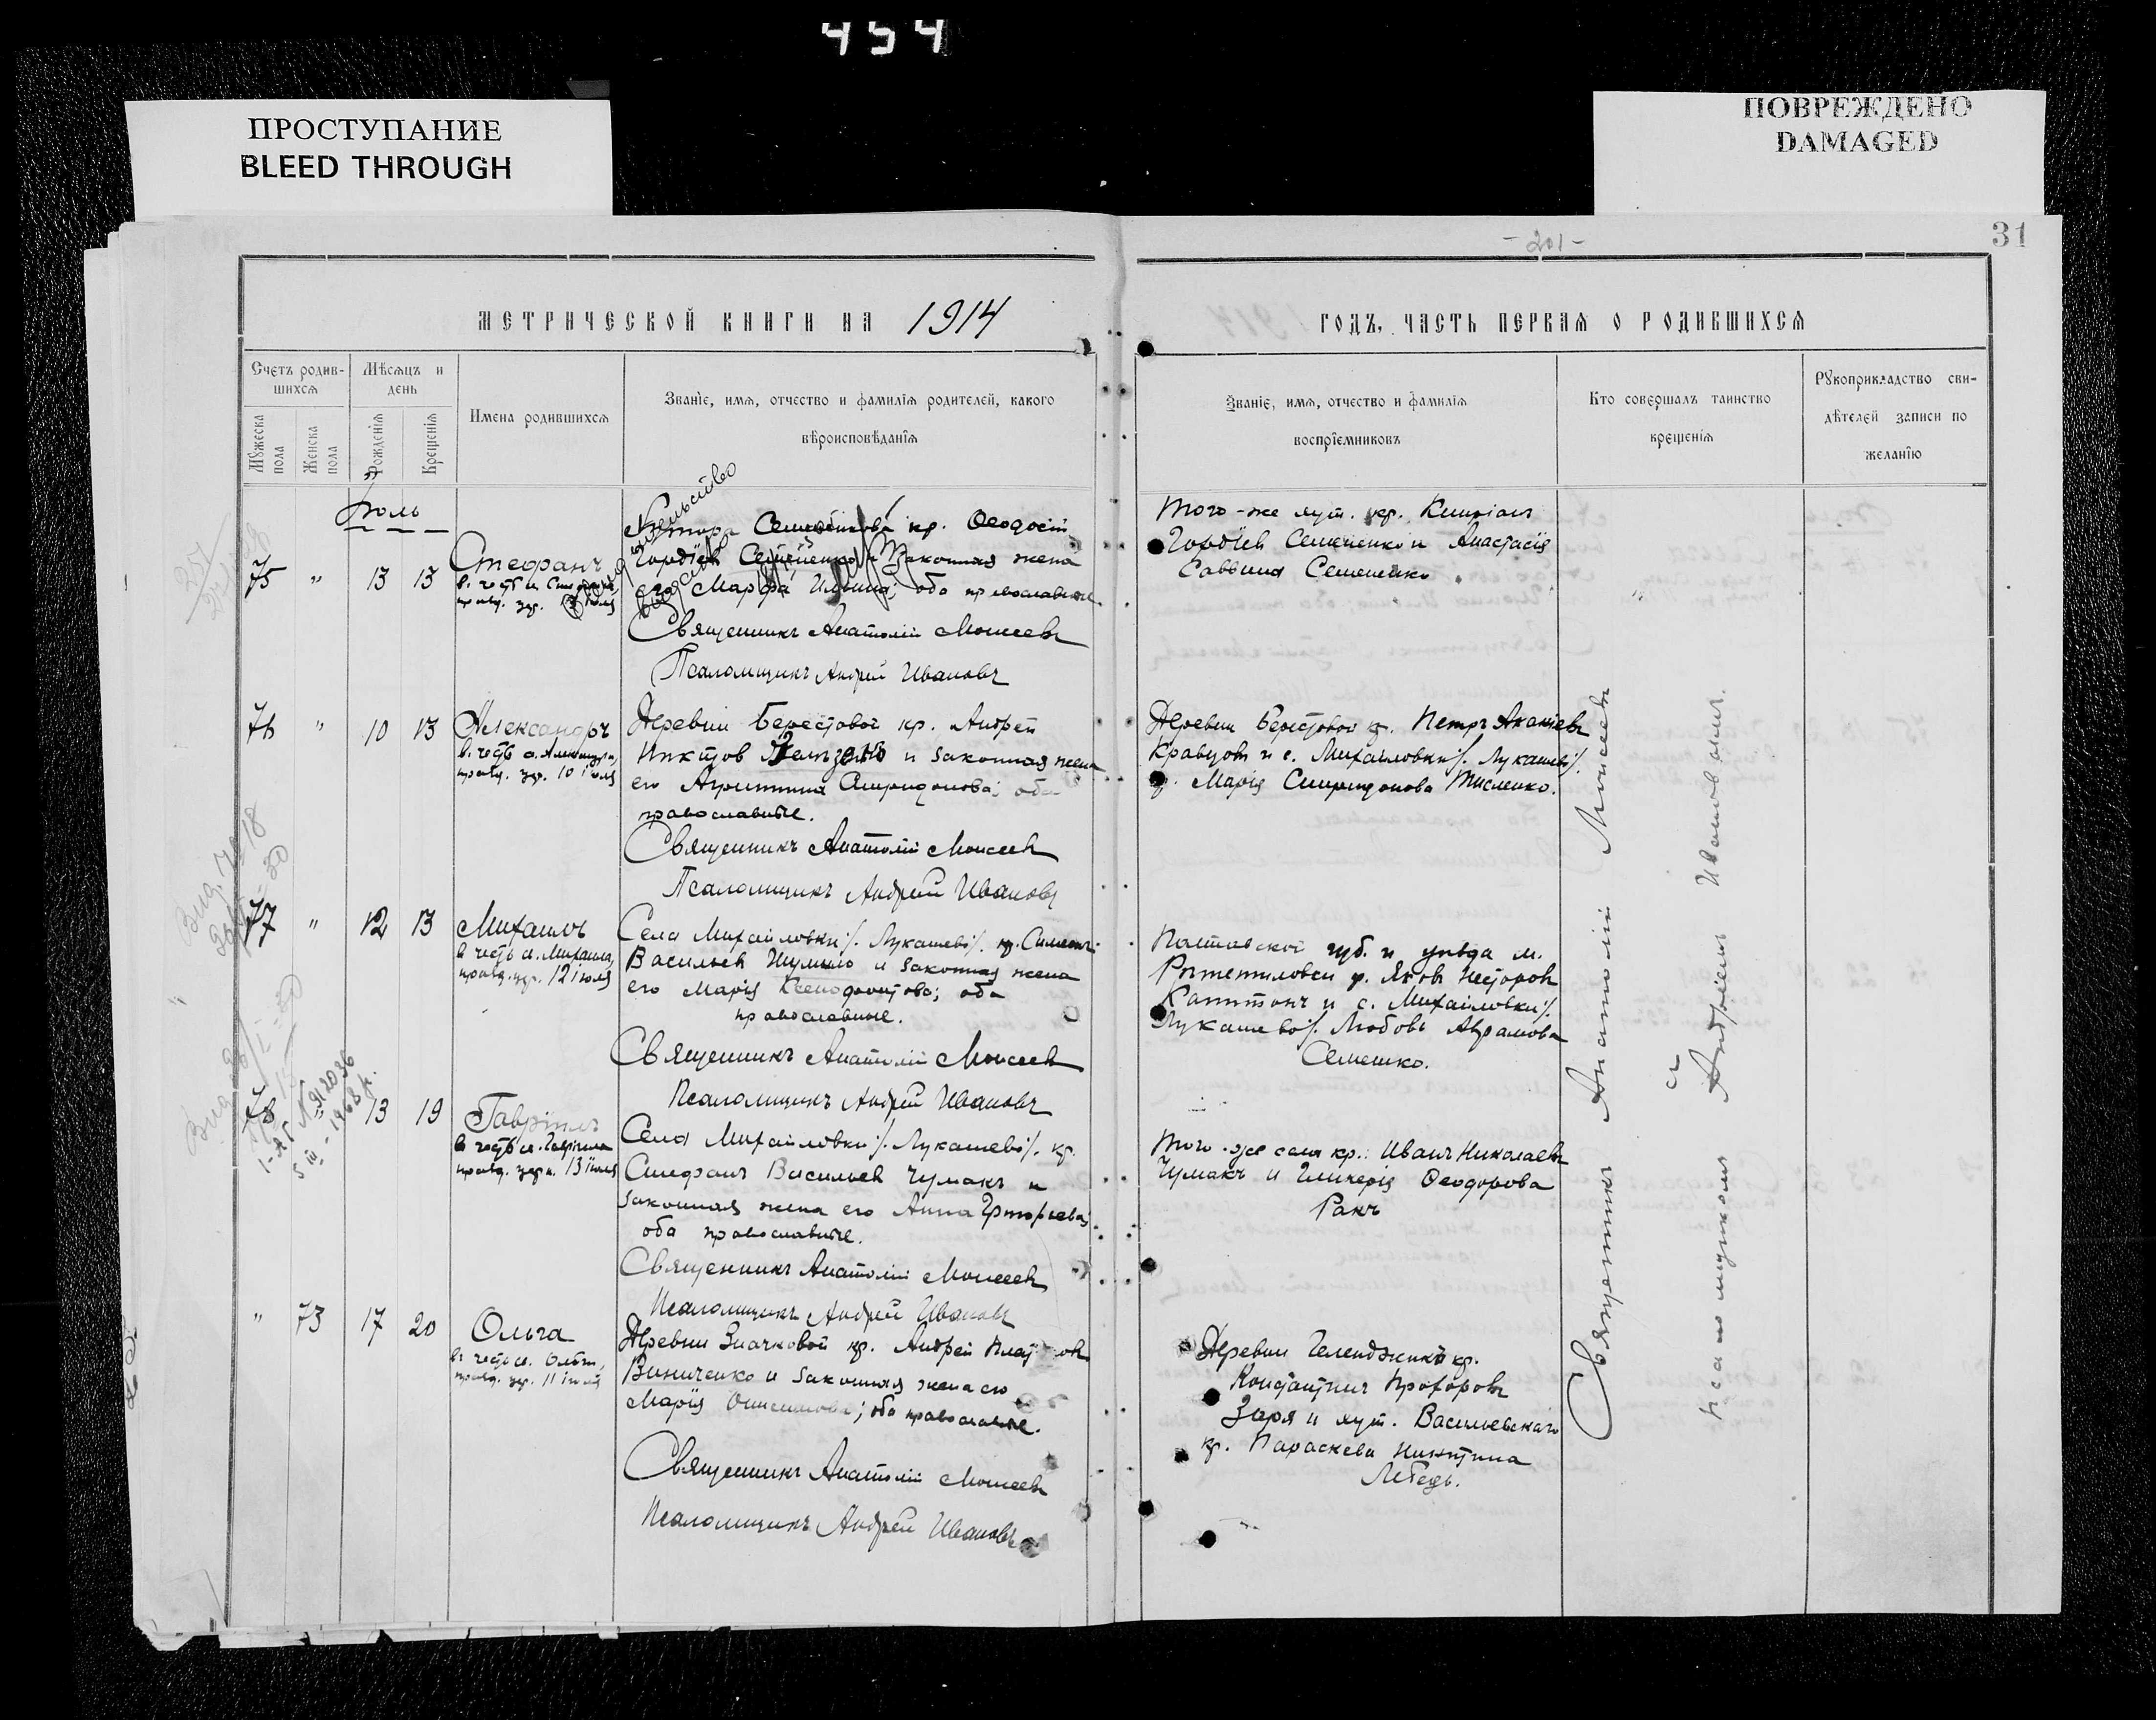 454
ПРОСТУПАНИЕ
BLEED THROUGH
ПОВРЕЖДЕНО
DAMAGED
- 201 -
31
МЕТРИЧЕСКОЙ КНИГИ НА 1914
ГОДЪ, ЧАСТЬ ПЕРВАЯ О РОДИВШИХСЯ
Счетъ родив-
шихся
Мѣсяцъ и
день
Мужеска
пола
Женска
пола
Рожденія
Крещенія
Имена родившихся
Званіе, имя, отчество и фамилія родителей, какого
вѣроисповѣданія
Званіе, имя, отчество и фамилія
воспріемниковъ
Кто совершалъ таинство
крещенія
Рукоприкладство сви-
дѣтелей записи по
желанію
Іюль
75 " 13 13
Стефанъ
в. честь св. Стефана,
празд. 13 іюля
Хутора кр. Ѳеодосій
Гордіевъ Семененко и законная жена
его Марфа Ильина; оба православные.
Священникъ Анатолій Моисеевъ
Псаломщикъ Андрей Ивановъ
Того-же хут. кр. Кипріанъ
Гордіевъ Семененко и Анастасія
Саввина Семененко.
76 " 10 13
Александръ
в. честь с. Александра,
празд. 10 іюля
Деревни Берестовой кр. Андрей
и законная жена
его Агрипина Спиридонова; оба
православные.
Священникъ Анатолій Моисеевъ
Псаломщикъ Андрей Ивановъ
Деревни Берестовой кр. Петръ Акакіевъ
Кравцовъ и с. Михайловки /. Лукашево /.
кр. Марія Спиридонова Тисленко.
77 " 12 13
Михаилъ
в честь св. Михаила,
празд. 12 іюля
Села Михайловки /. Лукашево /. кр. Симеонъ
Васильевъ и законная жена
его Марія Ксенофонтова; оба
православные.
Священникъ Анатолій Моисеевъ
Псаломщикъ Андрей Ивановъ
Полтавской губ. и уѣзда м.
Рѣшетиловки кр. Яковъ Несторовъ
и с. Михайловки /.
Лукашево /. Любовь Абрамова
Семешко.
78 " 13 19
Гавріилъ
в честь св. Гавріила
празд. 13 іюля
Села Михайловки /. Лукашево /. кр.
Стефанъ Васильевъ Чумакъ и
законная жена его Анна Григорьева;
оба православные.
Священникъ Анатолій Моисеевъ
Псаломщикъ Андрей Ивановъ
Того-же села кр.: Иванъ Николаевъ
Чумакъ и Гликерія Ѳеодорова
Ракъ
" 73 17 20
Ольга
въ честь св. Ольги,
празд. 11 іюля
Деревни Значковой кр. Андрей
Винниченко и законная жена его
Марія Онисимова; оба православные.
Священникъ Анатолій Моисеевъ
Псаломщикъ Андрей Ивановъ
Деревни Геленджика кр.
Константинъ Прохоровъ
Заря и хут. Васильевскаго
кр. Параскева Никитина
Лебедь.
Священникъ Анатолій Моисеевъ
и
псаломщикомъ Андреемъ Ивановымъ.